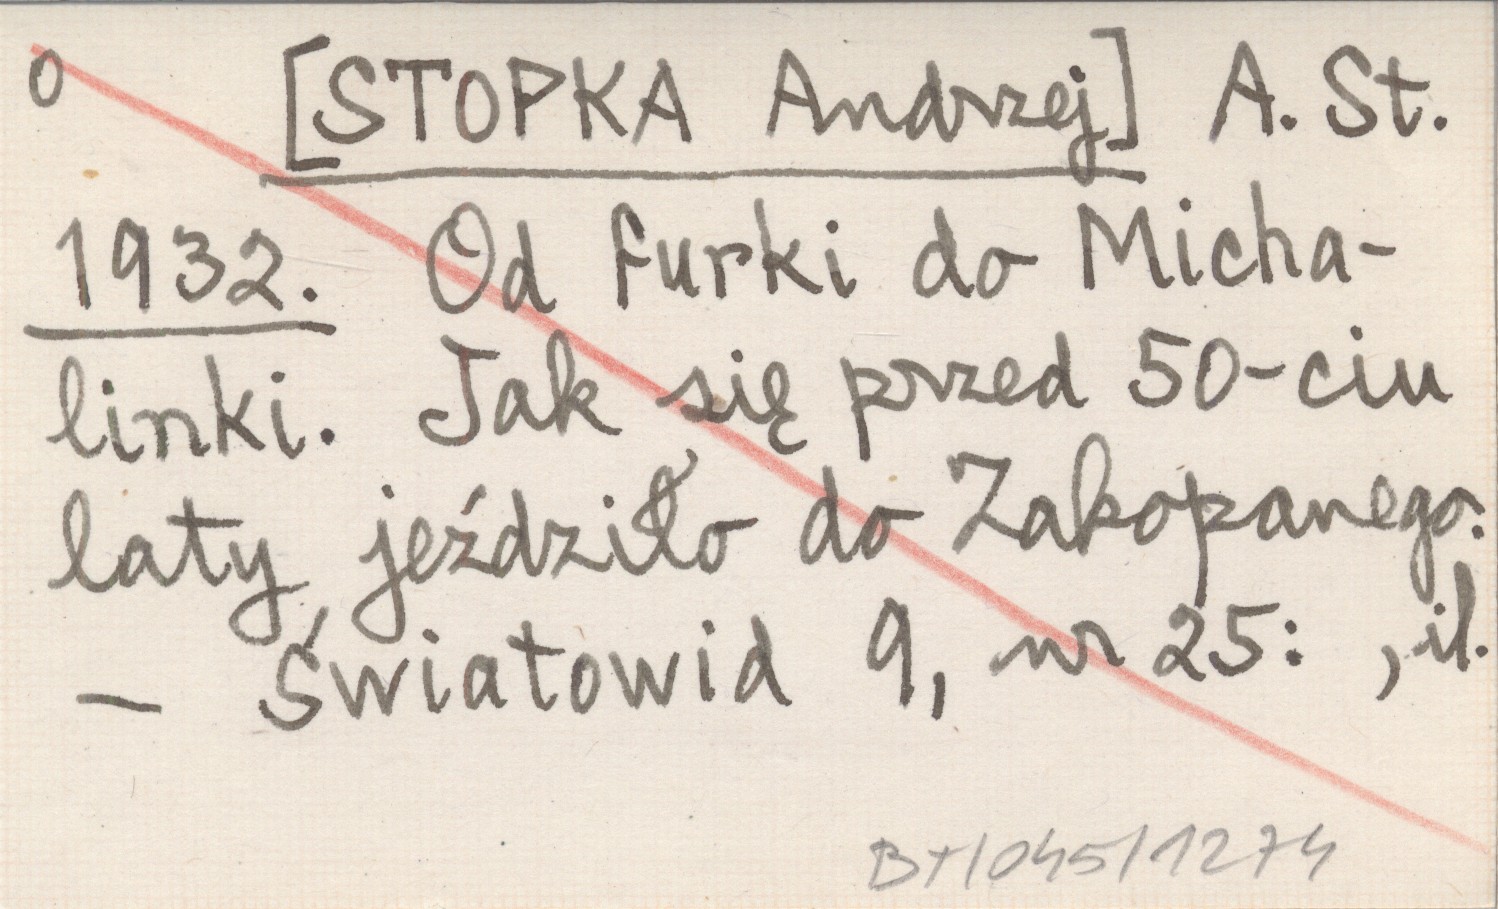 0 [STOPKA Andrzej] A. St.
1932. Od furki do Micha-
linki. Jak się przed 50-ciu
laty jeździło do Zakopanego.
– Światowid 9, nr 25: , il.
BT/045/1274